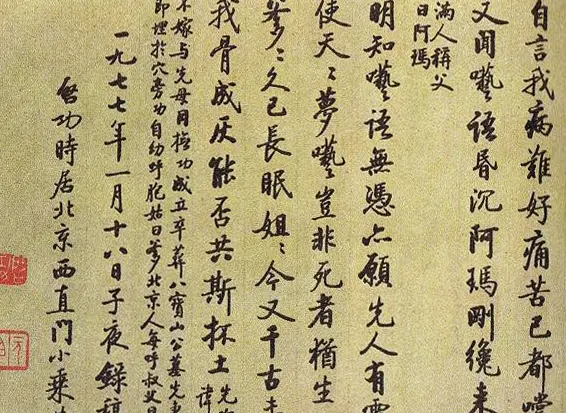 自言我病難好痛苦已都嚐
又聞囈語昏沉阿瑪剛纔来
滿人稱父
曰阿瑪
明知囈語無憑亦願先人有靈
使天〻夢囈豈非死者猶生
爹〻久已長眠姐〻今又千古
我骨成灰能否共斯抔土先
諱
不嫁与先母同撫功成立卒葬八寶山公墓先妻
即埋於穴旁功自幼呼胞姑曰爹北京人每呼叔父曰
一九七七年一月十八日子夜錄稿
啓功時居北京西直門小乘